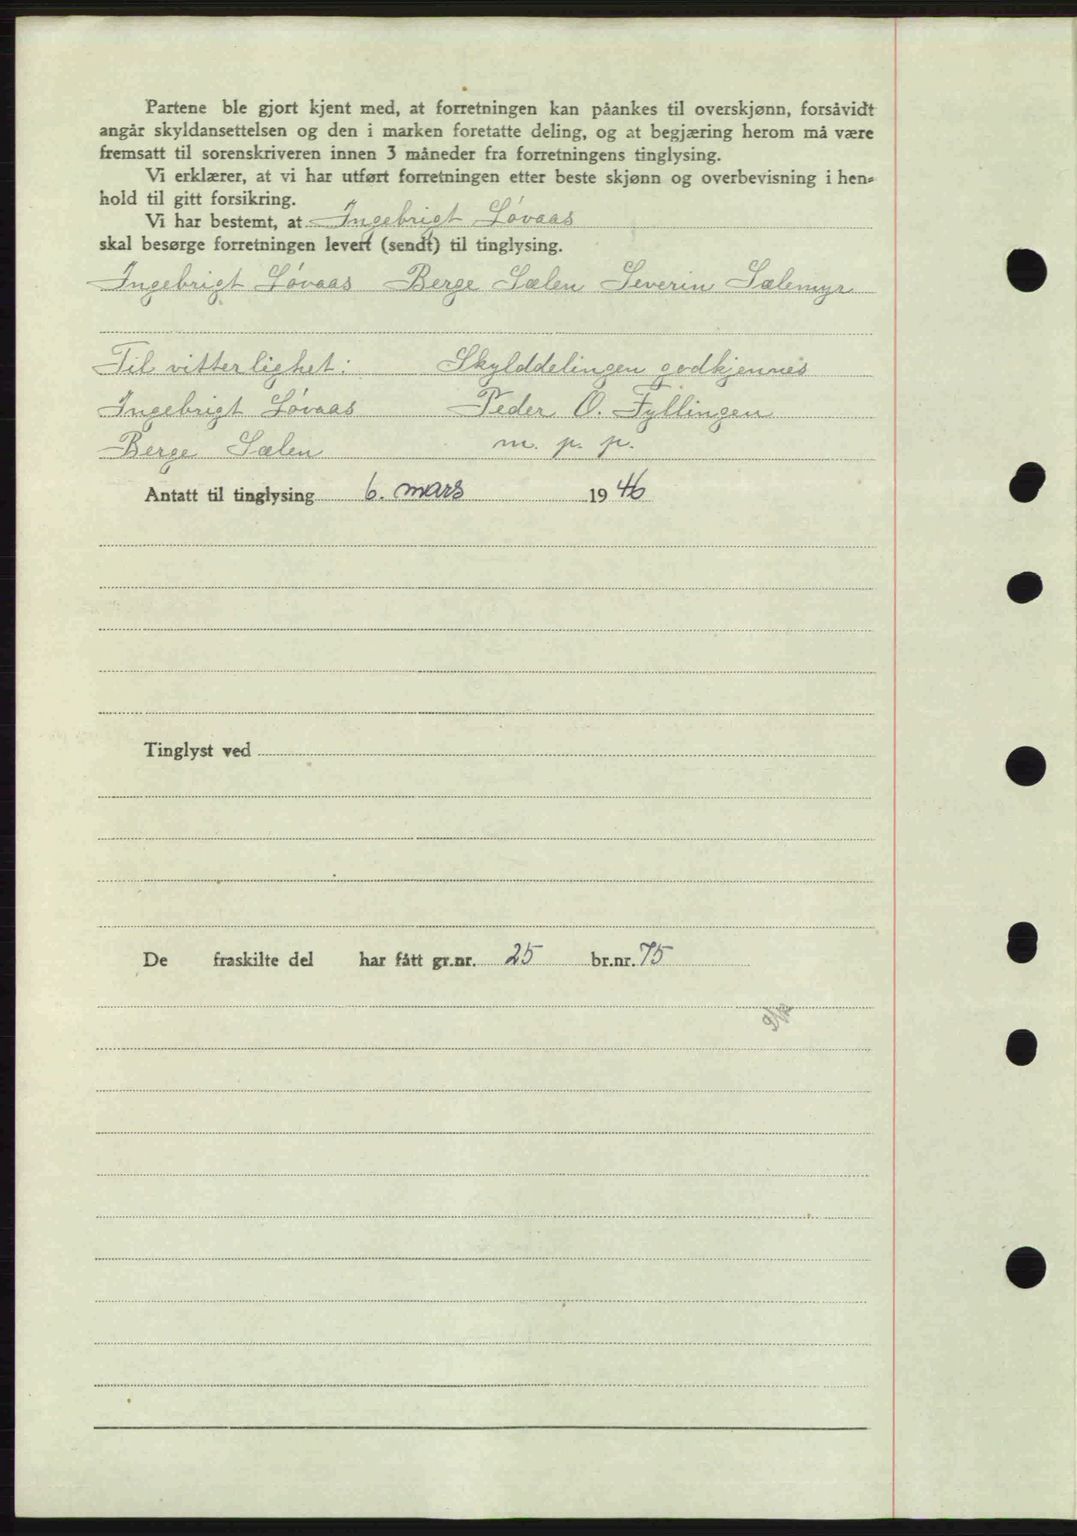 Partene ble gjort kjent med, at forretningen kan påankes til overskjønn, forsåvidt
angår skyldansettelsen og den i marken foretatte deling, og at begjæring herom må være
fremsatt til sorenskriveren innen 3 måneder fra forretningens tinglysing.
Vi erklærer, at vi har utført forretningen etter beste skjønn og overbevisning i hen-
hold til gitt forsikring.
Vi har bestemt, at Ingebrigt Løvaas
skal besørge forretningen levert (sendt) til tinglysing.
Ingebrigt Løvaas Berge Sælen Severin Sælemyr
Til vitterlighet: Skylddelingen godkjennes
Ingebrigt Løvaas Peder O. Fyllingen
Berge Sælen m. p. p.
Antatt til tinglysing 6. mars 1946
Tinglyst ved
De fraskilte del har fått gr.nr. 25 br.nr. 75